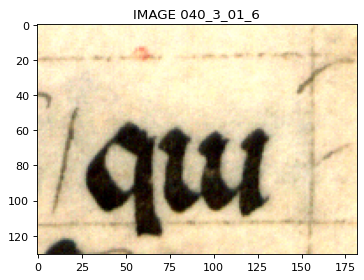 IMAGE 040_3_01_6
0
20
40
60
80
100
120
qui
0 25 50 75 100 125 150 175